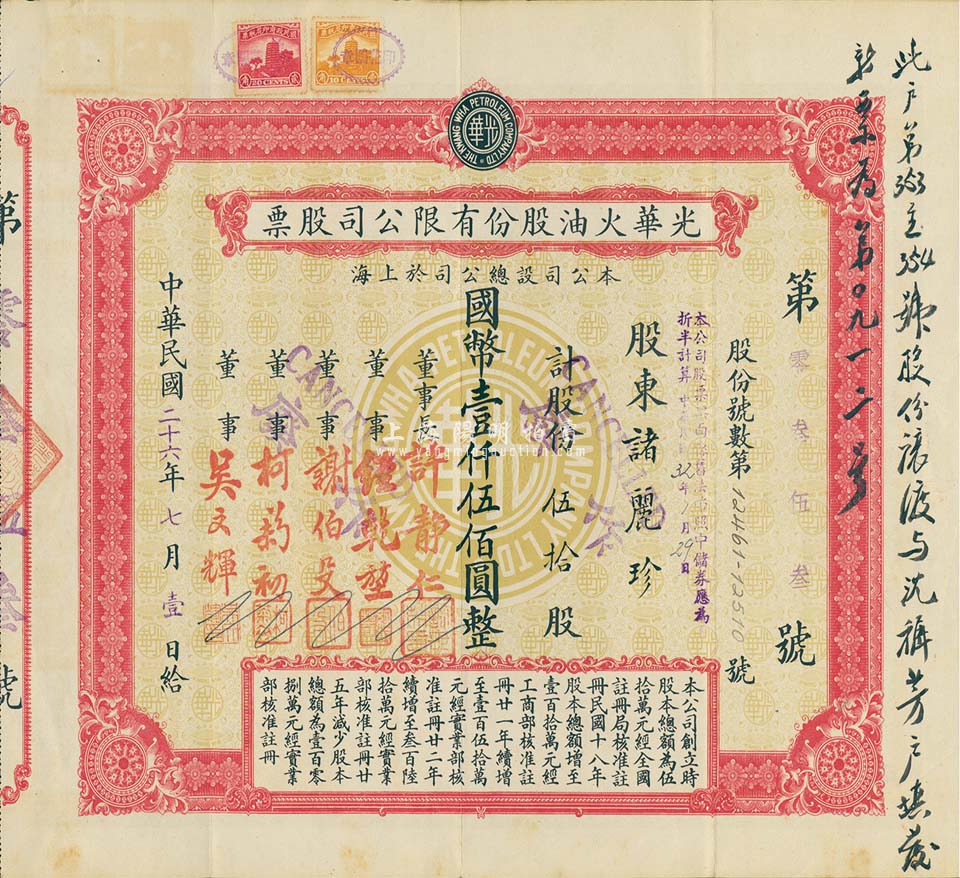 此戶第353至354號股份讓渡與沈
新票為第〇九一二号
貳角 20 CENTS
壹角 10 CENTS
THE KWANG WHA PETROLEUM COMPANY LTD
光華
光華火油股份有限公司股票
本公司設總公司於上海
第零叁伍叁號
股份號數第12461-12510號
本公司股票票面
折半計算
32年1月29日
照中儲券應為
股東諸麗珍
計股份伍拾股
國幣壹仟伍佰圓整
董事長許靜仁
董事經乾堃
董事謝伯殳
董事柯菊初
董事吳文輝
中華民國二十六年七月壹日給
CANCELLED
CANCELLED
本公司創立時
股本總額為伍
拾萬元經全國
註冊局核准註
冊民國十八年
股本總額增至
壹百拾萬元經
工商部核准註
冊廿一年續增
至壹百伍拾萬
元經實業部核
准註冊廿二年
續增至叁百陸
拾萬元經實業
部核准註冊廿
五年減少股本
總額為壹百零
捌萬元經實業
部核准註冊
第零叁伍叁號
上海陽明拍賣
www.yangmingauction.com